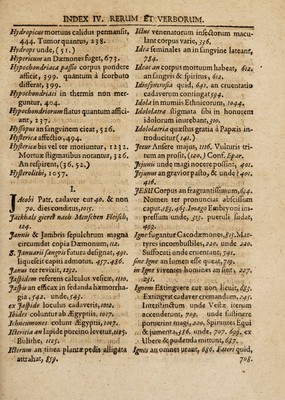 INDEX IV. RERUM ET VERBORUM.
Hydropicus mortuus calidus permansit,
444. Tumor quantus, 238.
Hydrops unde, (51.)
Hypericum an Dæmones fuget, 673.
Hypochondriaca passio corpus pondere
afficit, 399. quantum à scorbuto
differat, 399.
Hypochondriaci in thermis non mer-
guntur, 404.
Hypochondriorum flatus quantum affici-
ant, 237.
Hyssopus an sanguinem cieat, 526.
Hysterica affectio, 494.
Hysterica bis vel ter moriuntur, 1232.
Mortuæ stigmatibus notantur, 326.
An respirent, (56. 52.)
Hysterolithi, 1057.
I.
Jacobi Patr. cadaver cur 40. & non
70. dies conditum, 1015.
Jackhals gierelt nach Menschen Fleisch,
124.
Jannis & Jambris sepulchrum magna
circumdat copia Dæmonum, 112.
S. Januarii sanguis futura designat, 491.
liquescit capiti admotus, 457. 486.
Janus ter revixit, 1232.
Jaspidem referens calculus vesicæ, 1110.
Jaspis an efficax in sedanda hæmorrha-
gia, 542. unde, 543.
ex Jaspide loculus cadaveris, 1082.
Ibides coluntur ab Ægyptiis, 1017.
Ichneumones colunt Ægyptii, 1017.
Ictericia an lapide porcino levetur, 1125.
Bulithe, 1125.
Icterum an tinea plantæ pedis alligata
attrahat, 859.
Idiuc venenatorum insectorum macu-
lant corpus varie, 336.
Idea seminales an in sanguine lateant,
784.
Ideæ an corpus mortuum habeat, 612.
an sanguis & spiritus, 612.
Idiosyncrasia quid, 641. an cruentatio
cadaverum contingat, 594.
Idola in mumiis Ethnicorum, 1044.
Idololatra stigmata sibi in honorem
idolorum inurebant, 390.
Idololatria quæstus gratia à Papatu in-
troducitur (141.)
Jecur Anseris majus, 1116. Vulturis tri-
tum an prosit, (120.) Conf. Epar.
Jejunii unde magi nocere possint, 401.
Jejunus an gravior pasto, & unde (401.
416.
JESU Corpus an fragrantissimum, 644.
Nomen ter pronuncians abscissum
caput, 483. 485. Imago Embryoni im-
pressum unde, 313. puerulo sudat,
492.
Igne fugantur Cacodæmones, 513. Mar-
tyres incombustibles, 220. unde 220.
Suffocati unde cruentent, 721.
sine Igne an lumen esse queat, 719.
in Igne viventes homines an sint, 227.
291.
Ignem Extinguere cur non licuit, 683.
Extingvit cadaver cremandum, 245.
Intestinctum unde Vesta iterum
accenderunt, 709. unde sustinere
potuerint magi, 220. Spirantes Equi
& jumenta, 316. unde, 707. 699. ex
Ubere & pudenda mittunt, 687.
Ignes an omnes urant, 686. Fateri quid,
708.